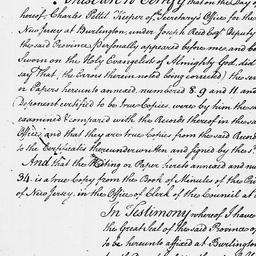 that on the Day of
hereof, Charles Pettit Keeper of Secretary's Office for the
New Jersey at Burlington, under Joseph Reid Esqr. Deputy
the said Province, Personally appeared before me, and be
Sworn on the Holy Evangelists of Almighty God, did
say That, (the Errors therein noted being corrected) the se
n Papers hereunto annexed, numbered 8. 9 and 11. and
Deponent certified to be true Copies, were by him the sa
examined & compared with the Records thereof in the sa
Office, and that they are true Copies from the said Recor
to the Certificates thereunder written and signed by the s
And that the Writing on Paper hereto annexed and nu
34. is a true Copy from the Book of Minutes of the Pri
of New Jersey, in the Office of Clerk of the Council at
In Testimony whereof I have
the Great Seal of the said Province o
to be hereunto affixed at Burlington